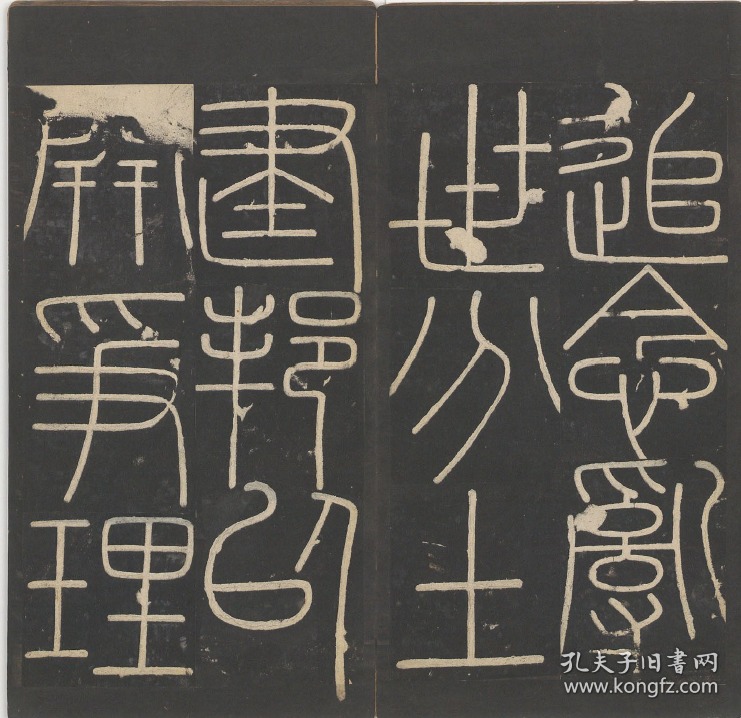 追念亂
世分土
建邦以
開爭理
孔夫子旧書网
www.kongfz.com